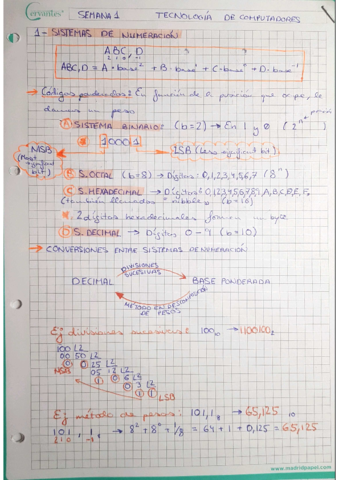 Cervantes
SEMANA 1 TECNOLOGÍA DE COMPUTADORES
1- SISTEMAS DE NUMERACIÓN
ABC, D
2 1 0 -1
ABC,D = A·base² + B·base¹ + C·base⁰ + D·base⁻¹
→ Códigos ponderados: En función de la posición que ocupe, le
damos un peso
A SISTEMA BINARIO: (b=2) → En 1 y 0 (2ⁿ ← posición)
10001
MSB
(Most significant bit)
LSB (Less significant bit)
B S. OCTAL (b=8) → Dígitos: 0,1,2,3,4,5,6,7 (8ⁿ)
C S. HEXADECIMAL → Dígitos: 0,1,2,3,4,5,6,7,8,9,A,B,C,D,E,F
(también llamados nibbles) (b=16)
* 2 dígitos hexadecimales forman un byte
D S. DECIMAL → Dígitos 0-9 (b=10)
→ CONVERSIONES ENTRE SISTEMAS DE NUMERACIÓN
DIVISIONES
SUCESIVAS
DECIMAL BASE PONDERADA
MÉTODO EN DESCOMPOSICIÓN
DE PESOS
Ej divisiones sucesivas: 100₁₀ → 1100100₂
100 L2
00 50 L2
0 0 25 L2
MSB 05 12 L2
1 0 6 L2
0 3 L2
1 1
LSB
Ej método de pesos: 101,1₈ → 65,125₁₀
101,1₈ → 8² + 8⁰ + 1/8 = 64 + 1 + 0,125 = 65,125
2 1 0 -1
www.madridpapel.com